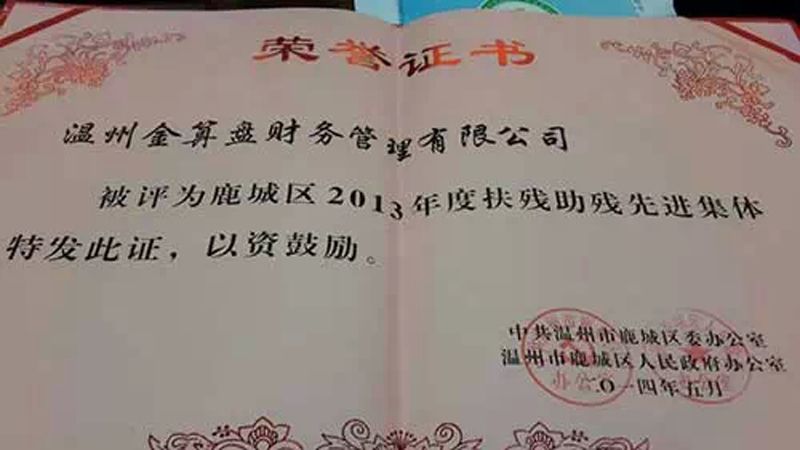 荣誉证书
温州金算盘财务管理有限公司
被评为鹿城区2013年度扶残助残先进集体
特发此证，以资鼓励。
中共温州市鹿城区委办公室
温州市鹿城区人民政府办公室
二〇一四年五月
办公室
办公室